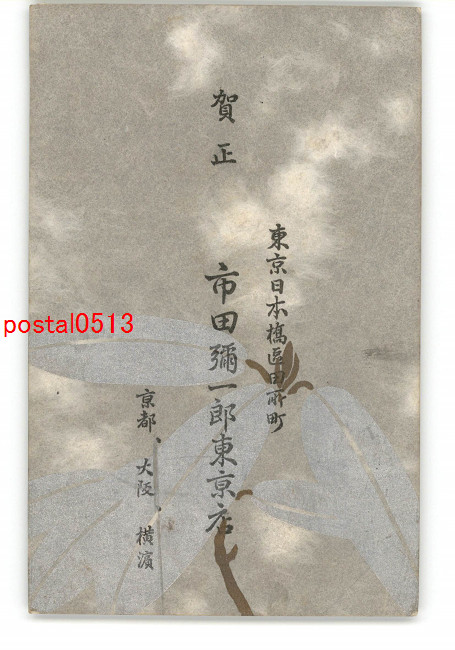 賀正
東京日本橋區田所町
市田彌一郎東京店
京都、大阪、横濱
postal0513